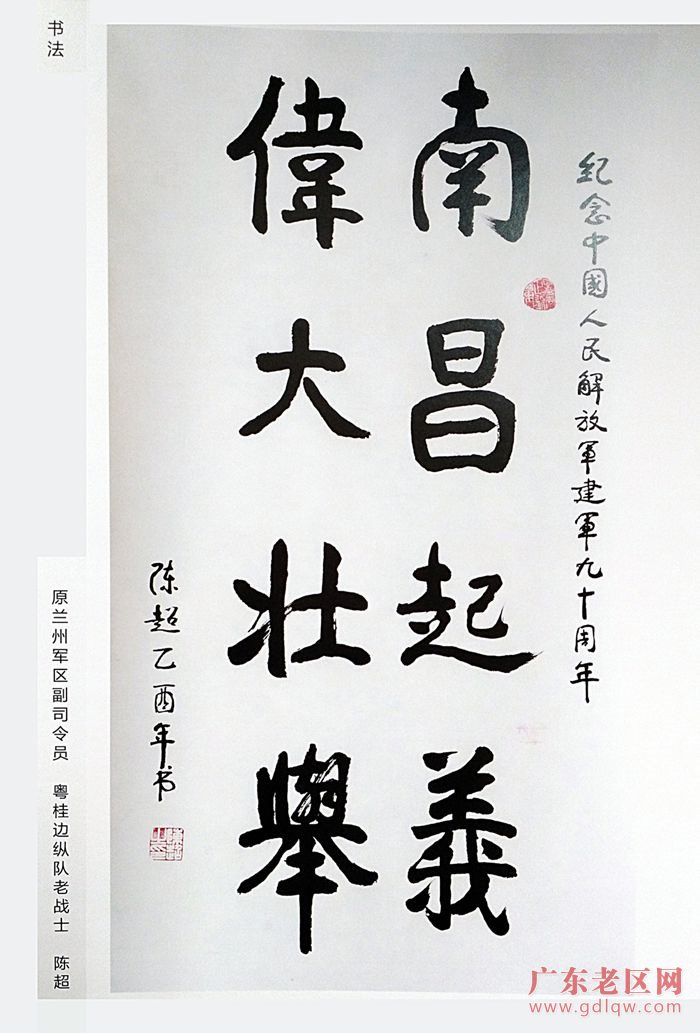 书法
纪念中國人民解放军建军九十周年
南昌起義
偉大壮舉
陈超乙酉年书
原兰州军区副司令员 粤桂边纵队老战士 陈超
广东老区网
www.gdlqw.com